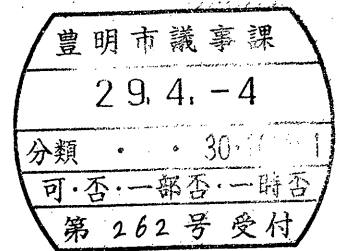 豊明市議事課
29.4.-4
分類 ・ ・ 30・ 1
可・否・一部否・一時否
第262号受付